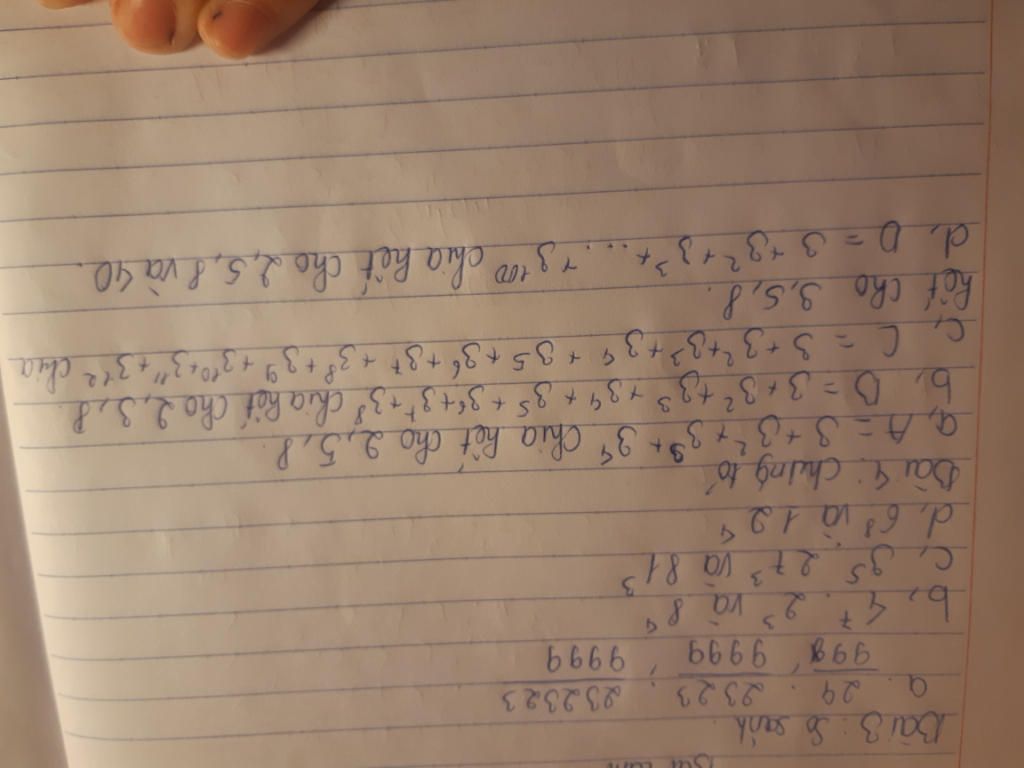 Bài 3: So sánh
a. ; 2323/9999 ; 232323/9999
b, 4⁷ . 2³ và 8⁴
c, 3⁵ . 27³ và 81³
d, 6⁸ và 12⁴
Bài 4: Chứng tỏ
a, A = 3+3²+3³+3⁴ chia hết cho 2,5,8.
b, B = 3+3²+3³+3⁴+3⁵+3⁶+3⁷+3⁸ chia hết cho 2,3,8.
c, C = 3+3²+3³+3⁴+3⁵+3⁶+3⁷+3⁸+3⁹+3¹⁰+3¹¹+3¹² chia
hết cho 3,5,8.
d, D = 3+3²+3³+....+3¹⁰⁰ chia hết cho 2,5,8 và 40.